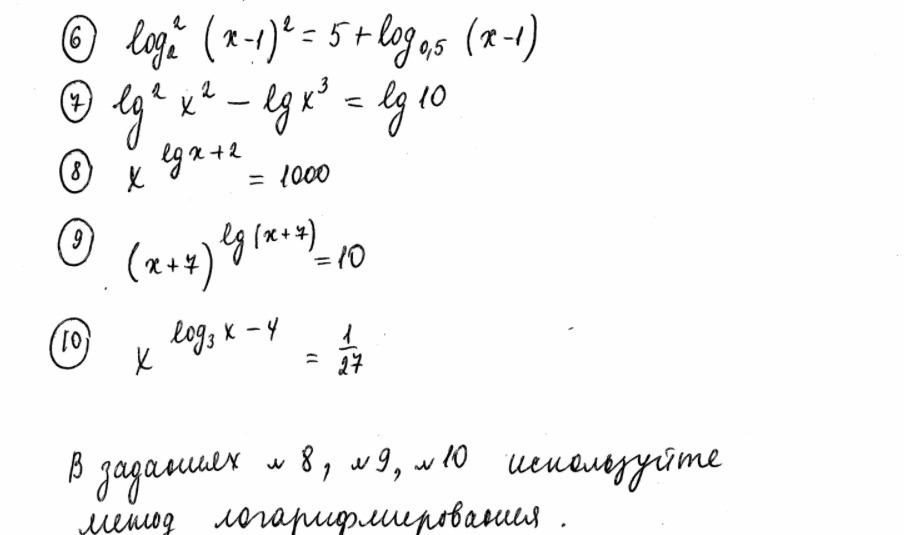 ⑥ log₂² (x-1)² = 5 + log₀,₅ (x-1)
⑦ lg² x² - lg x³ = lg 10
⑧ x^(lg x + 2) = 1000
⑨ (x+7)^(lg(x+7)) = 10
⑩ x^(log₃ x - 4) = 1/27
В заданиях № 8, № 9, № 10 используйте
метод логарифмирования.